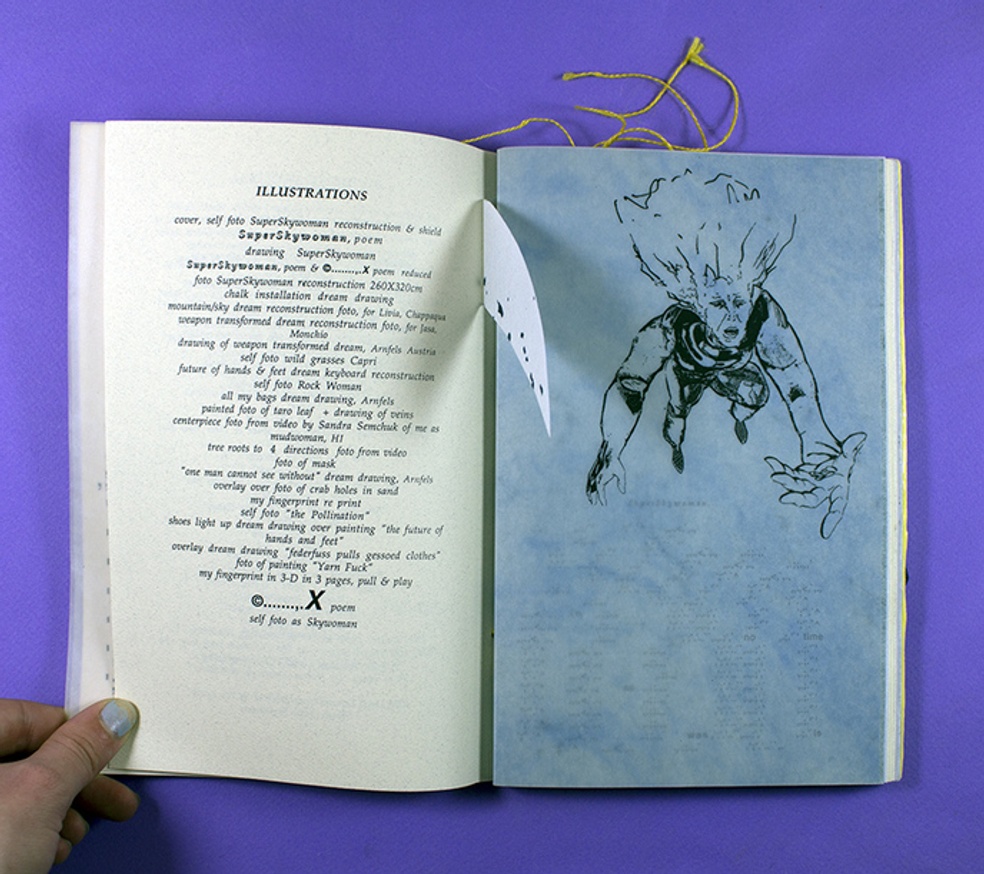 ILLUSTRATIONS
cover, self foto SuperSkywoman reconstruction & shield
SuperSkywoman, poem
drawing SuperSkywoman
SuperSkywoman, poem & ©........,.X poem reduced
foto SuperSkywoman reconstruction 260X320cm
chalk installation dream drawing
mountain/sky dream reconstruction foto, for Livia, Chappaqua
weapon transformed dream reconstruction foto, for Jasa,
Monchio
drawing of weapon transformed dream, Arnfels Austria
self foto wild grasses Capri
future of hands & feet dream keyboard reconstruction
self foto Rock Woman
all my bags dream drawing, Arnfels
painted foto of taro leaf + drawing of veins
centerpiece foto from video by Sandra Semchuk of me as
mudwoman, HI
tree roots to 4 directions foto from video
foto of mask
"one man cannot see without" dream drawing, Arnfels
overlay over foto of crab holes in sand
my fingerprint re print
self foto "the Pollination"
shoes light up dream drawing over painting "the future of
hands and feet"
overlay dream drawing "federfuss pulls gessoed clothes"
foto of painting "Yarn Fuck"
my fingerprint in 3-D in 3 pages, pull & play
©.......,.X poem
self foto as Skywoman
no time
was is